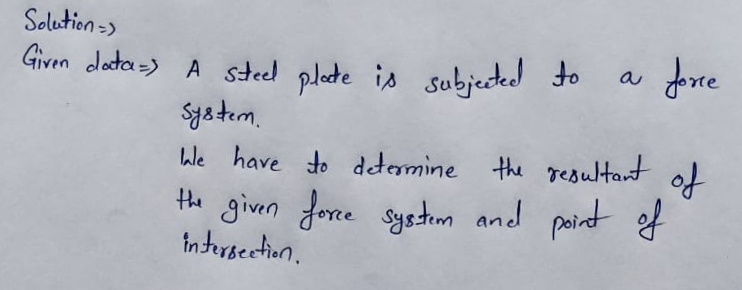 Solution =>
Given data => A steel plate is subjected to a force
system.
We have to determine the resultant of
the given force system and point of
intersection.